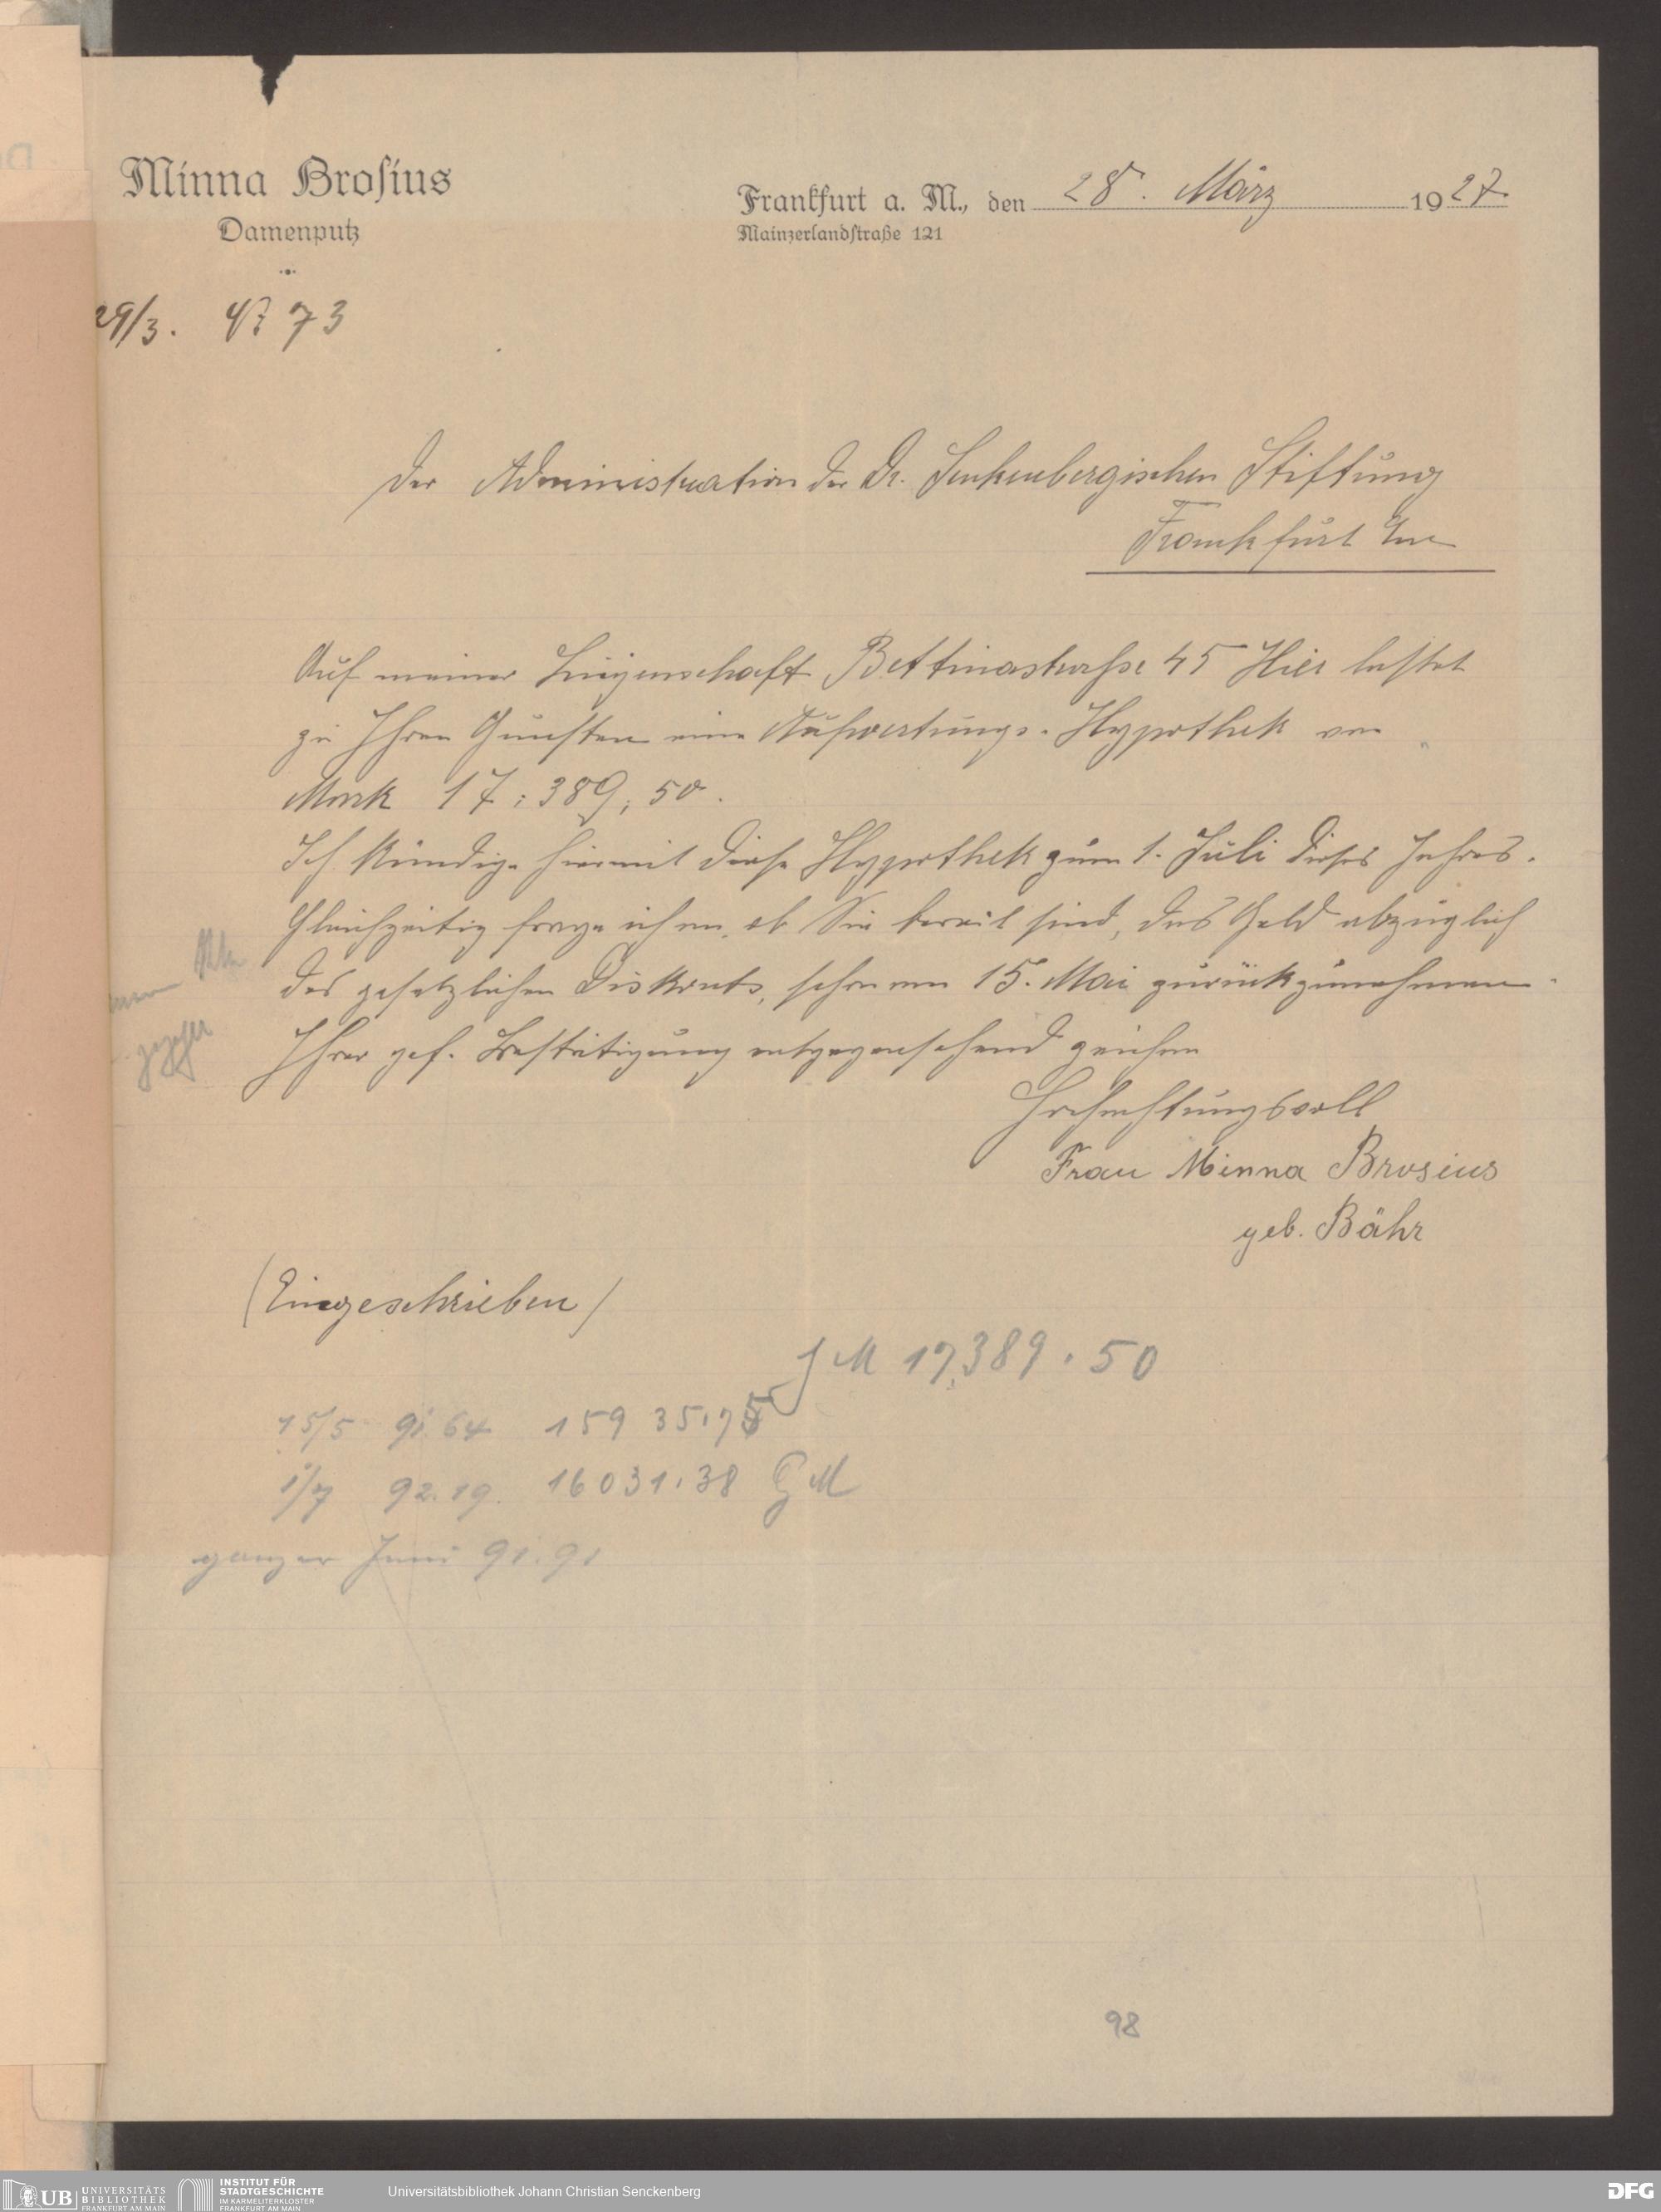 Minna Brosius
Damenputz
Frankfurt a. M., den 28. März 1927.
Mainzerlandstraße 121
29/3. № 73
Der Administration der Dr. Senkenbergischen Stiftung
Frankfurt
Auf meiner Liegenschaft Bettinastraße 45 Hier lastet
zu Ihren Gunsten eine Aufwertungs-Hypothek von
Mark 17:389,50.
Ich kündige hiermit diese Hypothek zum 1. Juli dieses Jahres.
Gleichzeitig frage ich an, ob Sie bereit sind, das Geld abzüglich
des gesetzlichen Diskonts, schon am 15. Mai zurückzunehmen.
Ihrer gef. Bestätigung entgegensehend zeichne
Hochachtungsvoll
Frau Minna Brosius
geb. Bähr
(Eingeschrieben)
GM 17,389.50
15/5 91.64 15935.75
1/7 92.19. 16031.38 GM
ganzer Juni 91.91
98
UB UNIVERSITÄTS
BIBLIOTHEK
FRANKFURT AM MAIN
INSTITUT FÜR
STADTGESCHICHTE
IM KARMELITERKLOSTER
FRANKFURT AM MAIN
Universitätsbibliothek Johann Christian Senckenberg
DFG